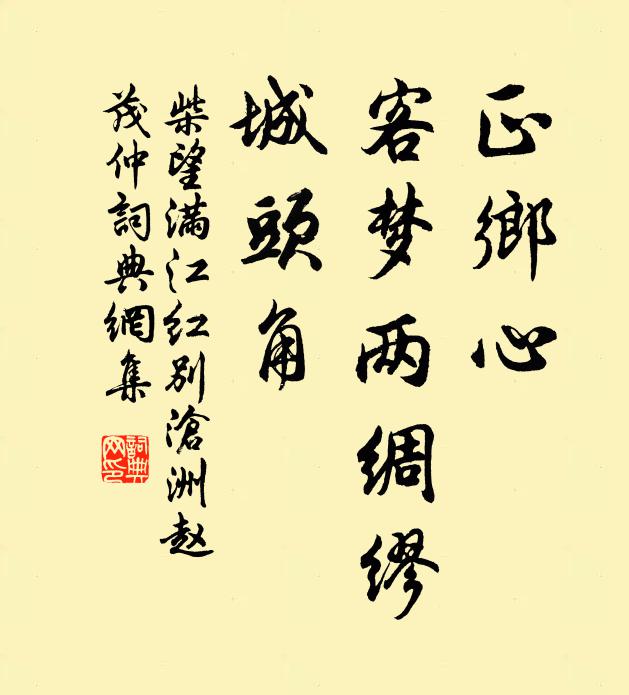 正鄉心
客梦两綢繆
城頭角
柴望滿江红别滄洲赵
茂仲詞典網集
詞典网印